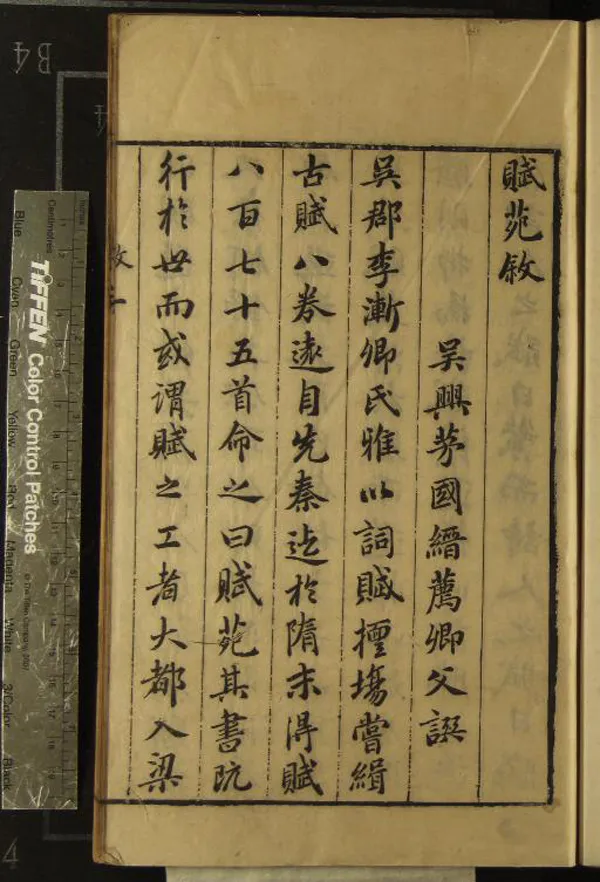 賦苑敘
吳興茅國縉薦卿父譔
吳郡李漸卿氏雅以詞賦擅塲嘗緝
古賦八卷遠自先秦迄於隋末得賦
八百七十五首命之曰賦苑其書阮
行於世而或謂賦之工者大都入梁
敘 一
Inches
Centimetres
TIFFEN Color Control Patches
Blue
Cyan
Green
Yellow
Red
Magenta
White
3/Color
Black
B4
4